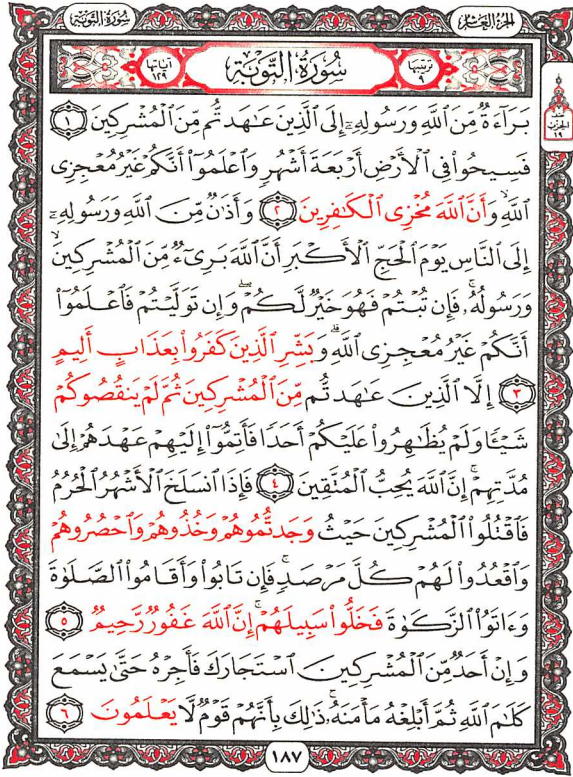 سُورَةُ التَّوْبَةِ الجُزْءُ العَاشِرُ
ترتيبها ٩ سُورَةُ التَّوْبَةِ آياتها ١٢٩
بَرَآءَةٌ مِّنَ ٱللَّهِ وَرَسُولِهِۦٓ إِلَى ٱلَّذِينَ عَـٰهَدتُّم مِّنَ ٱلْمُشْرِكِينَ ١
فَسِيحُوا۟ فِى ٱلْأَرْضِ أَرْبَعَةَ أَشْهُرٍ وَٱعْلَمُوٓا۟ أَنَّكُمْ غَيْرُ مُعْجِزِى
ٱللَّهِ ۙ وَأَنَّ ٱللَّهَ مُخْزِى ٱلْكَـٰفِرِينَ ٢ وَأَذَٰنٌ مِّنَ ٱللَّهِ وَرَسُولِهِۦٓ
إِلَى ٱلنَّاسِ يَوْمَ ٱلْحَجِّ ٱلْأَكْبَرِ أَنَّ ٱللَّهَ بَرِىٓءٌ مِّنَ ٱلْمُشْرِكِينَ ۙ
وَرَسُولُهُۥ ۚ فَإِن تُبْتُمْ فَهُوَ خَيْرٌ لَّكُمْ ۖ وَإِن تَوَلَّيْتُمْ فَٱعْلَمُوٓا۟
أَنَّكُمْ غَيْرُ مُعْجِزِى ٱللَّهِ ۗ وَبَشِّرِ ٱلَّذِينَ كَفَرُوا۟ بِعَذَابٍ أَلِيمٍ
٣ إِلَّا ٱلَّذِينَ عَـٰهَدتُّم مِّنَ ٱلْمُشْرِكِينَ ثُمَّ لَمْ يَنقُصُوكُمْ
شَيْـًٔا وَلَمْ يُظَـٰهِرُوا۟ عَلَيْكُمْ أَحَدًا فَأَتِمُّوٓا۟ إِلَيْهِمْ عَهْدَهُمْ إِلَىٰ
مُدَّتِهِمْ ۚ إِنَّ ٱللَّهَ يُحِبُّ ٱلْمُتَّقِينَ ٤ فَإِذَا ٱنسَلَخَ ٱلْأَشْهُرُ ٱلْحُرُمُ
فَٱقْتُلُوا۟ ٱلْمُشْرِكِينَ حَيْثُ وَجَدتُّمُوهُمْ وَخُذُوهُمْ وَٱحْصُرُوهُمْ
وَٱقْعُدُوا۟ لَهُمْ كُلَّ مَرْصَدٍ ۚ فَإِن تَابُوا۟ وَأَقَامُوا۟ ٱلصَّلَوٰةَ
وَءَاتَوُا۟ ٱلزَّكَوٰةَ فَخَلُّوا۟ سَبِيلَهُمْ ۚ إِنَّ ٱللَّهَ غَفُورٌ رَّحِيمٌ ٥
وَإِنْ أَحَدٌ مِّنَ ٱلْمُشْرِكِينَ ٱسْتَجَارَكَ فَأَجِرْهُ حَتَّىٰ يَسْمَعَ
كَلَـٰمَ ٱللَّهِ ثُمَّ أَبْلِغْهُ مَأْمَنَهُۥ ۚ ذَٰلِكَ بِأَنَّهُمْ قَوْمٌ لَّا يَعْلَمُونَ ٦
١٨٧